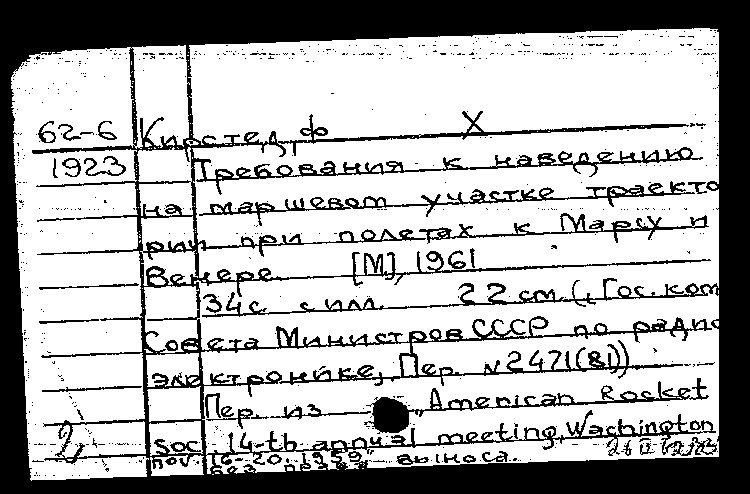 62-6 Кирстед, Ф X
1923 Требования к наведению
на маршевом участке траекто
рии при полетах к Марсу и
Венере [М], 1961
34 с. с илл. 22 см. (, Гос. ком
Совета Министров СССР по радио
электронике, Пер. N 2471(81))
Пер. из „American Rocket
Soc. 14-th annual meeting, Washington
2
nov. 16-20. 1959" выноса.
без права